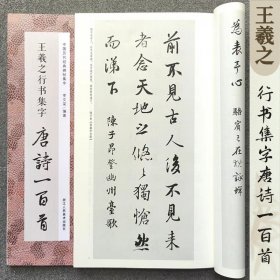 王羲之行书集字
唐詩一百首
為表予心
駱賓王在獄詠蟬
前不見古人後不見来
者念天地之悠悠獨愴然
而涕下
陳子昂登幽州臺歌
王羲之
行书集字唐诗一百首